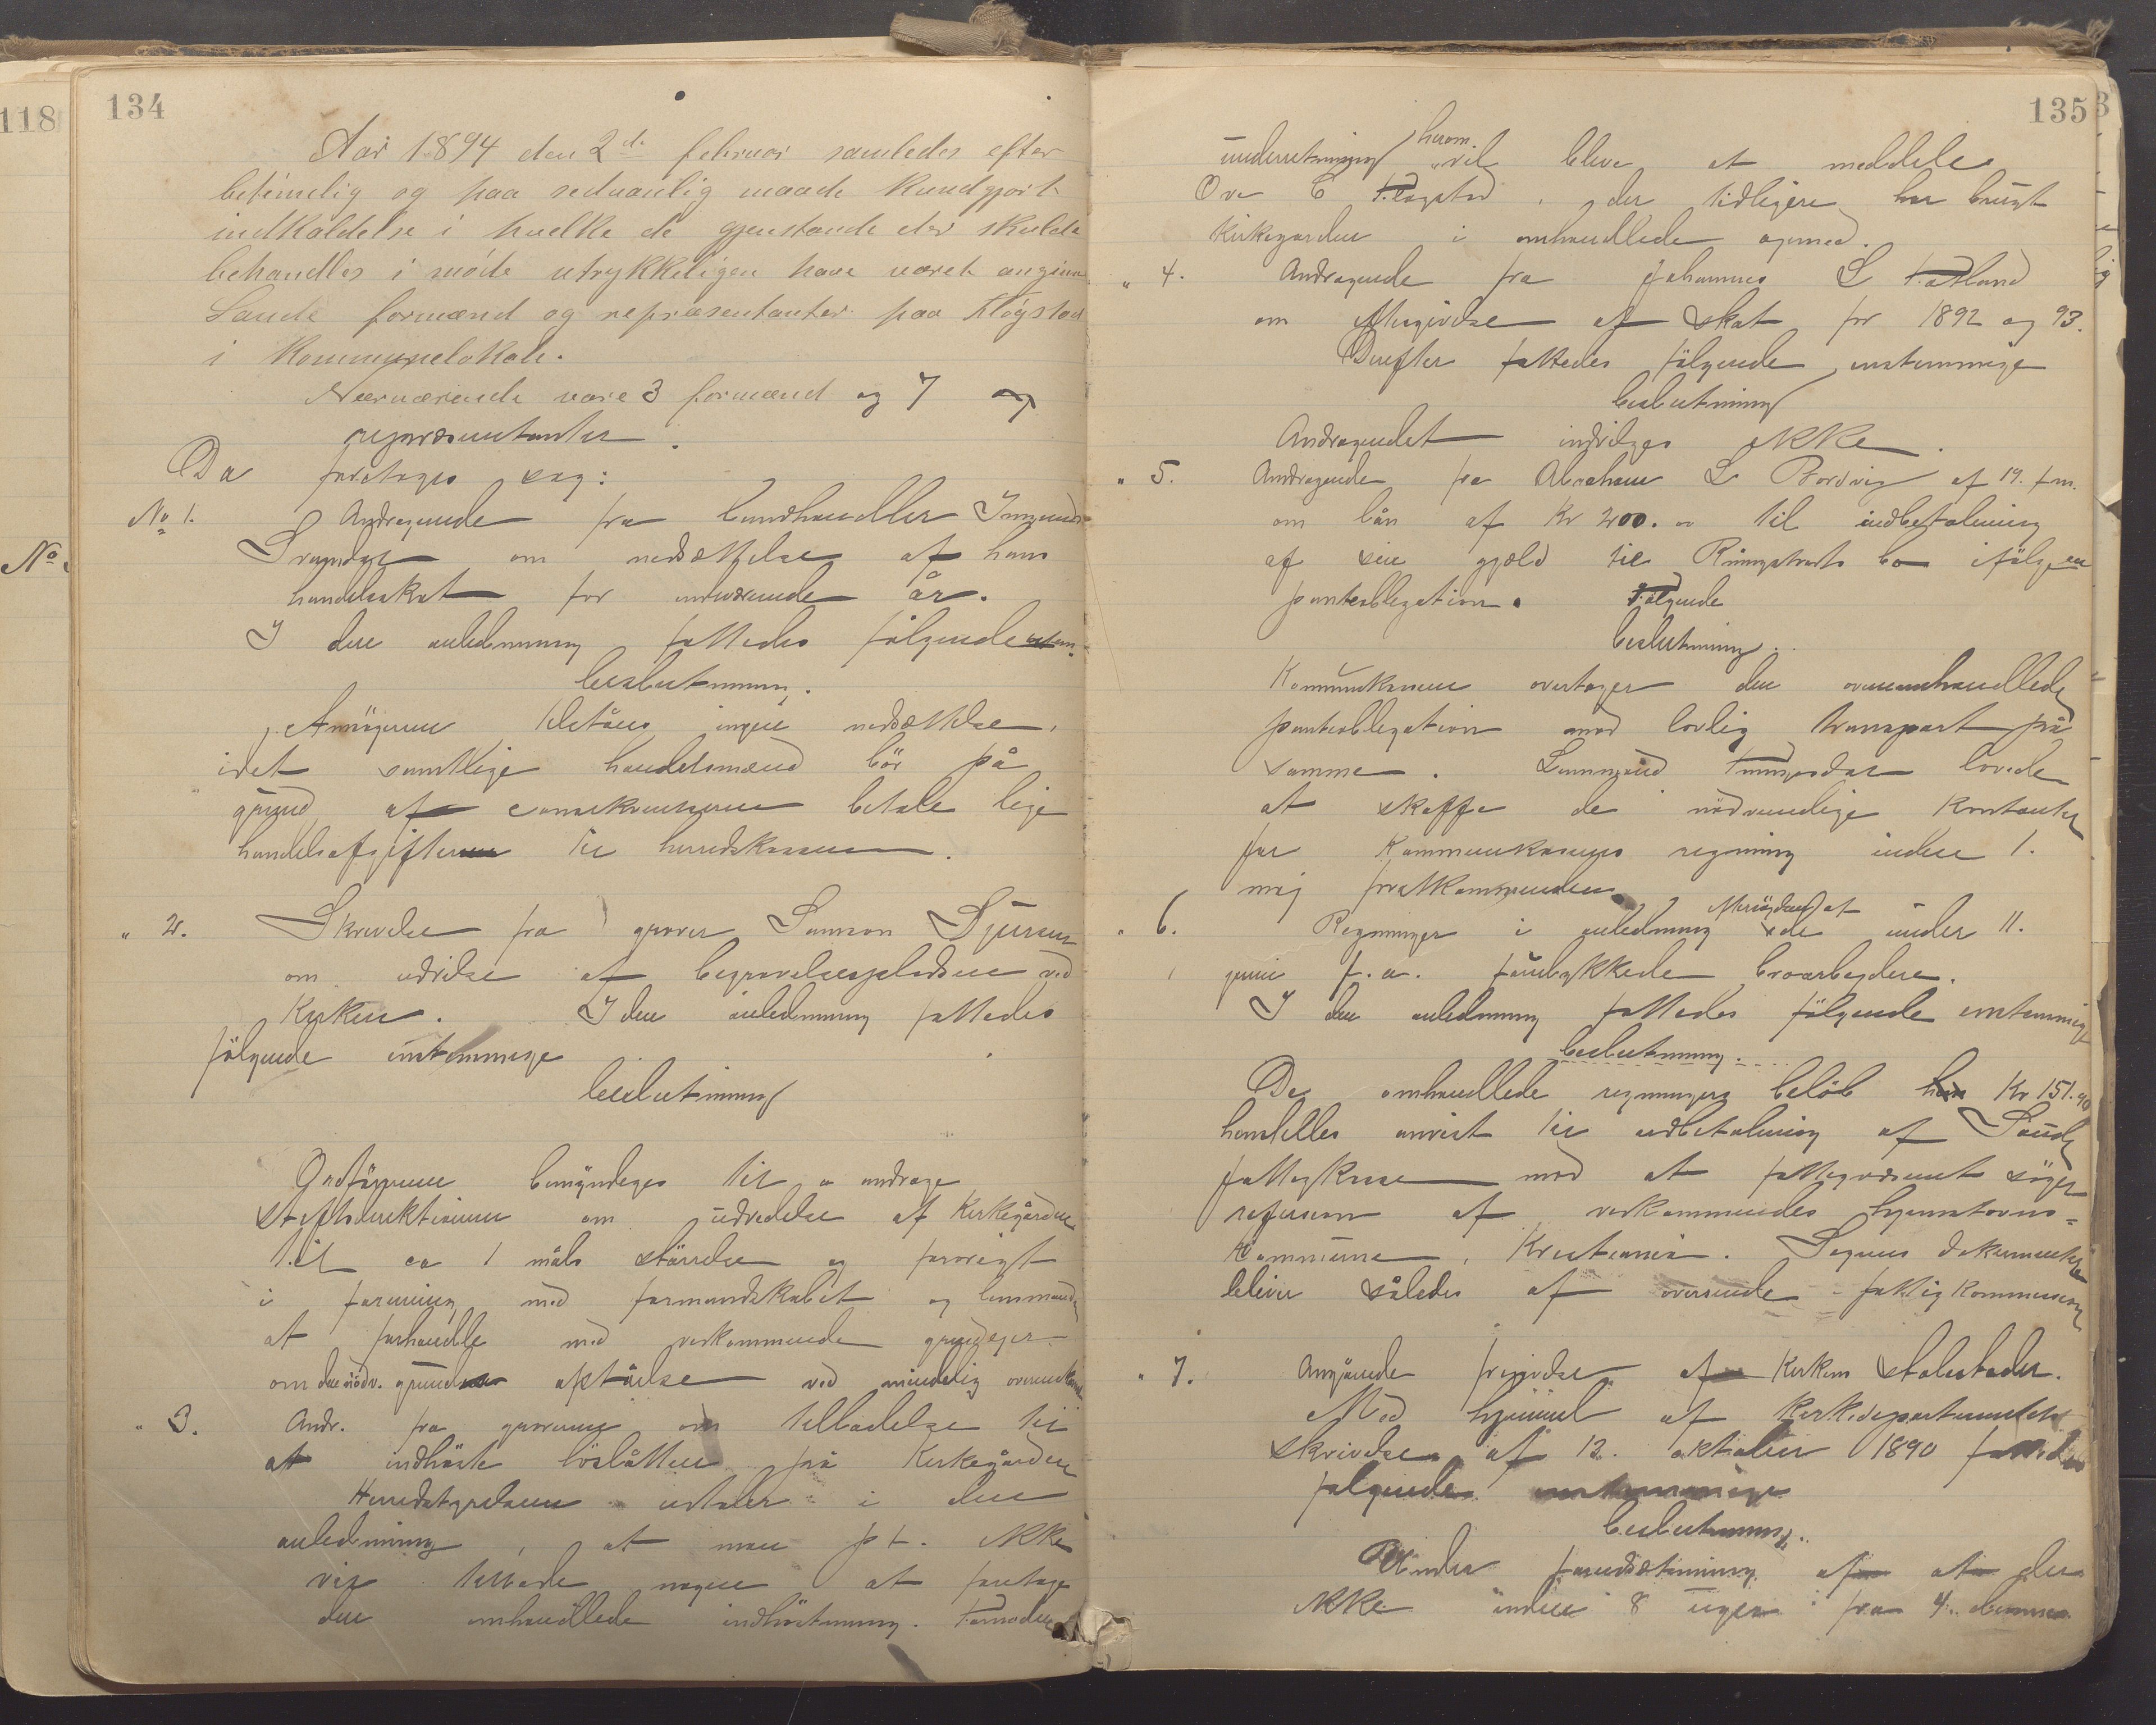 118
No
134
Aar 1894 den 2de februar samledes efter
betimelig og paa sedvanlig maade kundgjort
indkaldelse i hvilke de gjenstande der skulde
behandles i møde utrykkeligen have været angivne
Saude formænd og repræsentanter paa Fløgstad
i kommunelokale.
Nærværende vare 3 formænd og 7
repræsentanter.
Da foretoges sag:
No 1. Andragende fra landhandler
om nedsættelse af hans
handelsskat for nærværende år.
I den anledning fattedes følgende
beslutning.
Ansøgeren tilståes ingen nedsættelse,
idet samtlige handelsmænd bör på
grund af konkurrencen betale lige
handelsafgifter til herredskassen.
" 2. Skrivelse fra graver Samson
om udvidelse af begravelsespladsen ved
Kirken. I den anledning fattedes
fölgende enstemmige
beslutning
Ordföreren bemyndiges til a andrage
Stiftsdirektionen om udvidelse af Kirkegården
til ca 1 måls størrelse og forövrigt
i forening med formandskabet og lensmanden
at forhandle med vedkommende grundejer
om den nödv. grunds afståelse ved mindelig overenskomst
" 3. Andr. fra graveren om tilladelse til
at indhöste löslåtten på Kirkegården
Herredstyrelsen udtaler i den
anledning, at man pt. ikke
vil tillade nogen at foretage
den omhandlede indhöstning. Fornøden
135
underretning herom vil blive at meddele
Ove E Fløgstad, der tidligere har brugt
kirkegården i omhandlede öjemed.
" 4. Andragende fra Johannes L
om eftergivelse af skat for 1892 og 93.
Derefter fattedes fölgende enstemmige
beslutning
Andragendet indvilges ikke.
" 5. Andragende fra Abraham L af 19. f.m.
om lån af Kr 200.00 til indbetaling
af sin gjæld til bo ifölge en
panteobligation. Fölgende
beslutning.
Kommunekassen overtager den ovenomhandlede
panteobligation mod lovlig transport på
samme. Lensmand lovede
at skaffe de nödvendige kontanter
for kommunekassens regning inden 1.
maj førstkommende.
" 6. Regninger i anledning af de under 11.
juni f.a. forulykkede broarbejdere.
I den anledning fattedes fölgende enstemmige
beslutning.
De omhandlede regningers belöb Kr 151.90
henstilles anvist til udbetaling af Saude
fattigkasse mod at fattigvæsenet söger
refusion af vedkommendes hjemstavns=
kommune, Kristiania. Sagens dokumenter
bliver således at oversende fattigkommissionen
" 7. Angående frigivelse af Kirkens stolestader.
Med hjemmel af Kirkedepartementets
skrivelse af 13. oktober 1890 fattedes
følgende enstemmige
beslutning.
Under forudsætning af at der
ikke inden 8 uger fra 4. dennes